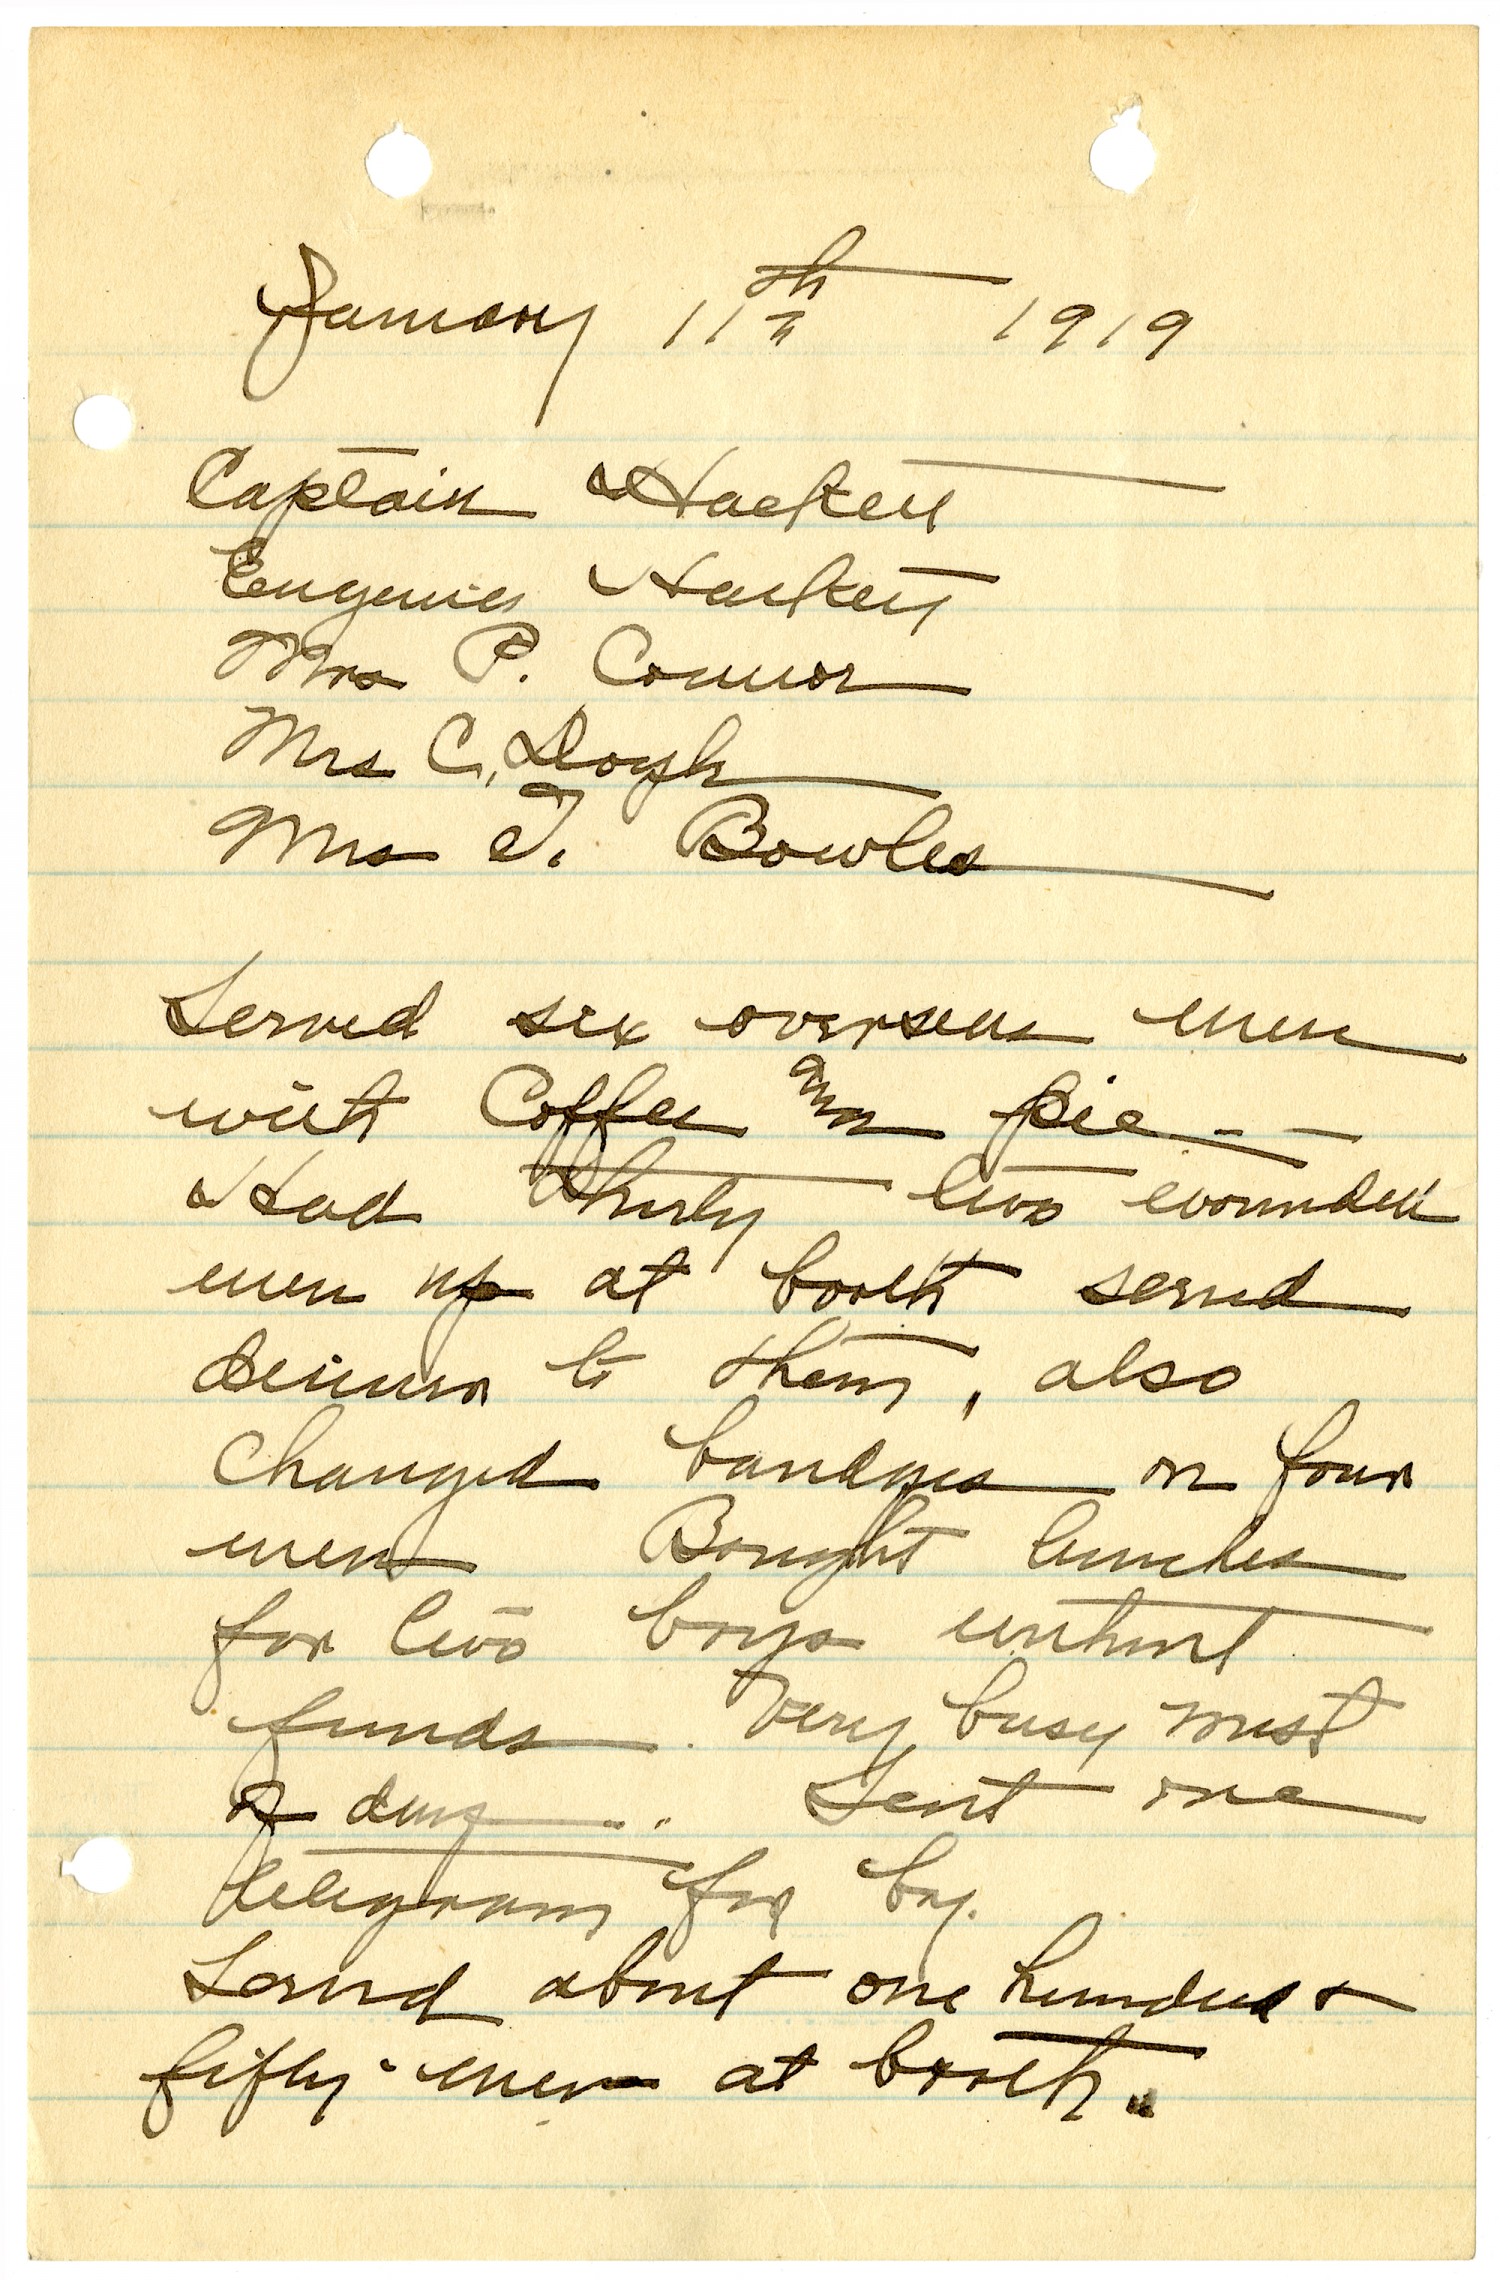 January 11th 1919
Captain Hackett
Eugenia Hackett
Mrs P. Connor
Mrs C.
Mrs T. Bowles
Served six overseas men
with Coffee and pie - -
Had Thirty two wounded
men up at booth served
dinner to them, also
Changed bandages on four
men Bought lunches
for two boys without
funds. Very busy most
of day.. Sent one
telegram for boy.
Served about one hundred &
fifty men at booth.